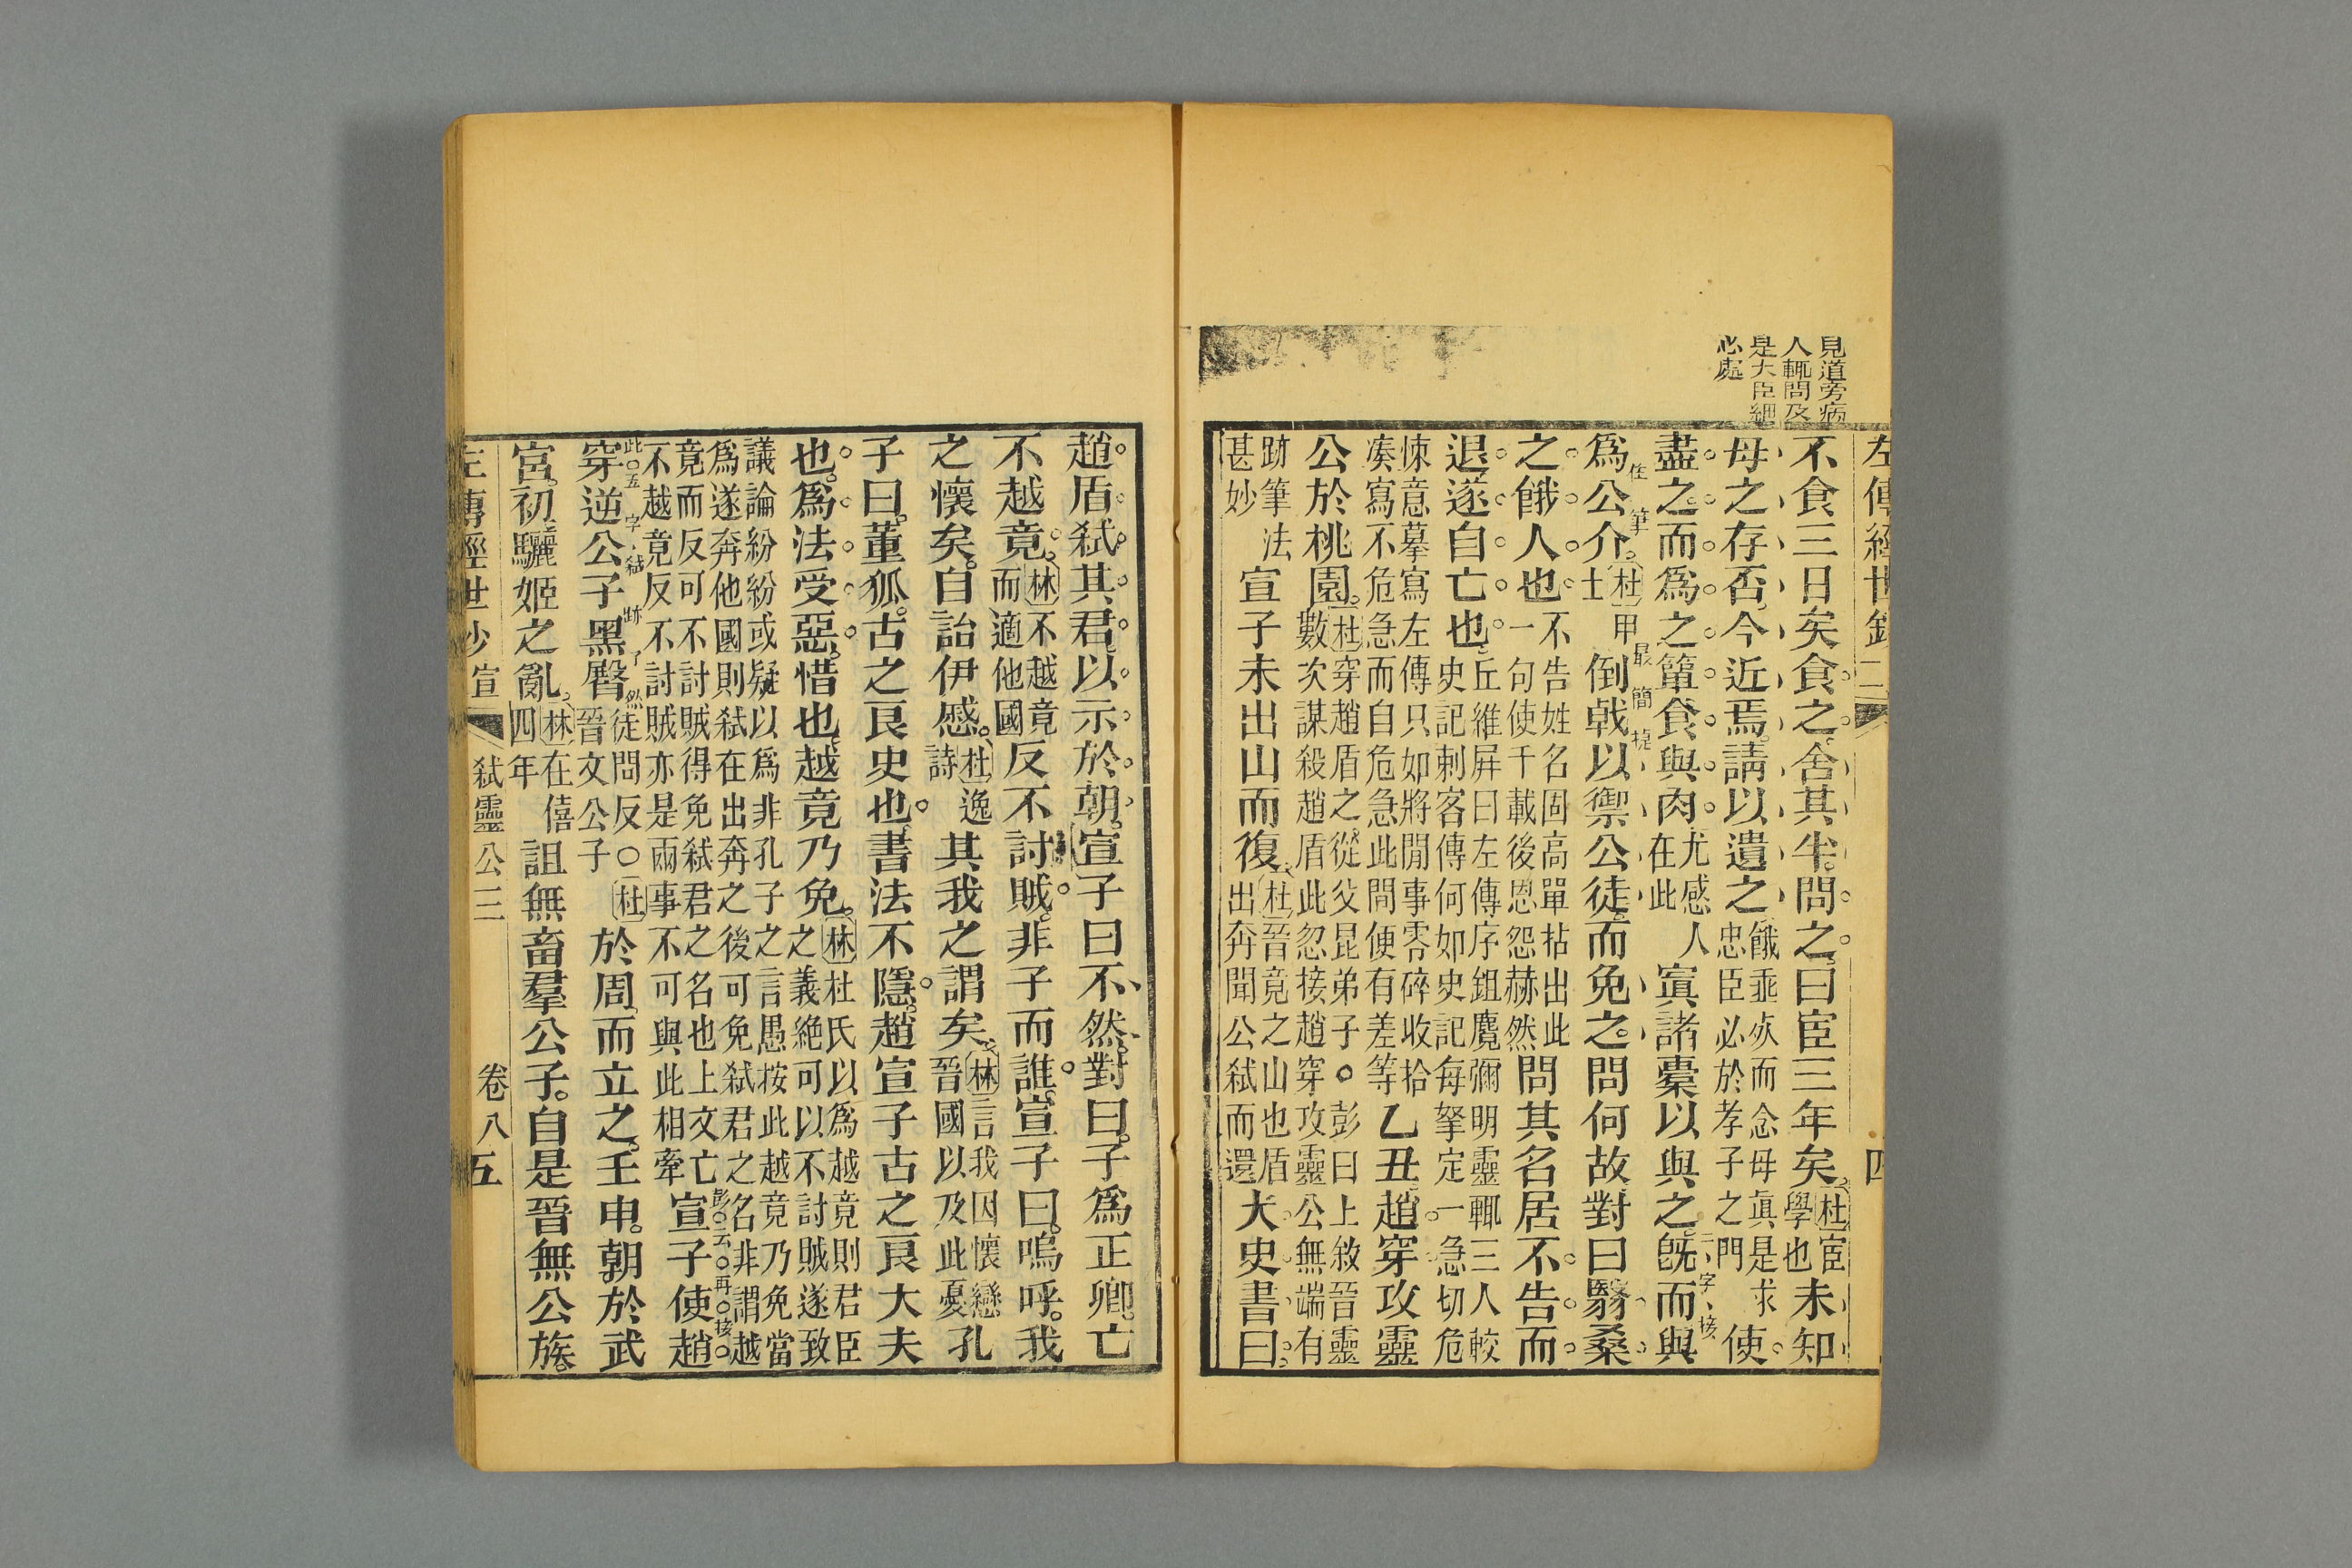 見道旁病
人輒問及
是大臣細
心處
左傳經世鈔二 四
不食三日矣食之舍其半問之曰宦三年矣[杜]宦學也未知
母之存否今近焉請以遺之餓垂死而念母真是求忠臣必於孝子之門使
盡之而為之簞食與肉尤感人在此寘諸橐以與之既而與
二字接
為公介[杜]甲士倒戟以禦公徒而免之問何故對曰翳桑
住筆 最簡捷
之餓人也不告姓名固高單拈出此一句使千載後恩怨赫然問其名居不告而
退遂自亡也丘維屏曰左傳序鉏麑彌明靈輒三人較史記刺客傳何如史記每拏定一急切危
悚意摹寫左傳只如將閒事零碎收拾湊寫不危急而自危急此間便有差等乙丑趙穿攻靈
公於桃園[杜]穿趙盾之從父昆弟子○彭曰上敘晉靈數次謀殺趙盾此忽接趙穿攻靈公無端有
跡筆法甚妙宣子未出山而復[杜]晉竟之山也盾出奔聞公弒而還大史書曰
趙盾弒其君以示於朝宣子曰不然對曰子為正卿亡
不越竟[林]不越竟而適他國反不討賊非子而誰宣子曰嗚呼我
之懷矣自詒伊慼[杜]逸詩其我之謂矣[林]言我因懷戀晉國以及此憂孔
子曰董狐古之良史也書法不隱趙宣子古之良大夫
也為法受惡惜也越竟乃免[林]杜氏以為越竟則君臣之義絕可以不討賊遂致
議論紛紛或疑以為非孔子之言愚按此越竟乃免當為遂奔他國則弒在出奔之後可免弒君之名非謂越
竟而反可不討賊得免弒君之名也上文亡不越竟反不討賊亦是兩事不可與此相牽宣子使趙
彭○云○再○接○
穿逆公子黑臀晉文公子於周而立之壬申朝於武
此○五字弒跡了然徒問反○[杜]
宮初驪姬之亂[林]在僖四年詛無畜羣公子自是晉無公族
左傳經世鈔 宣 弒靈公三 卷八 五